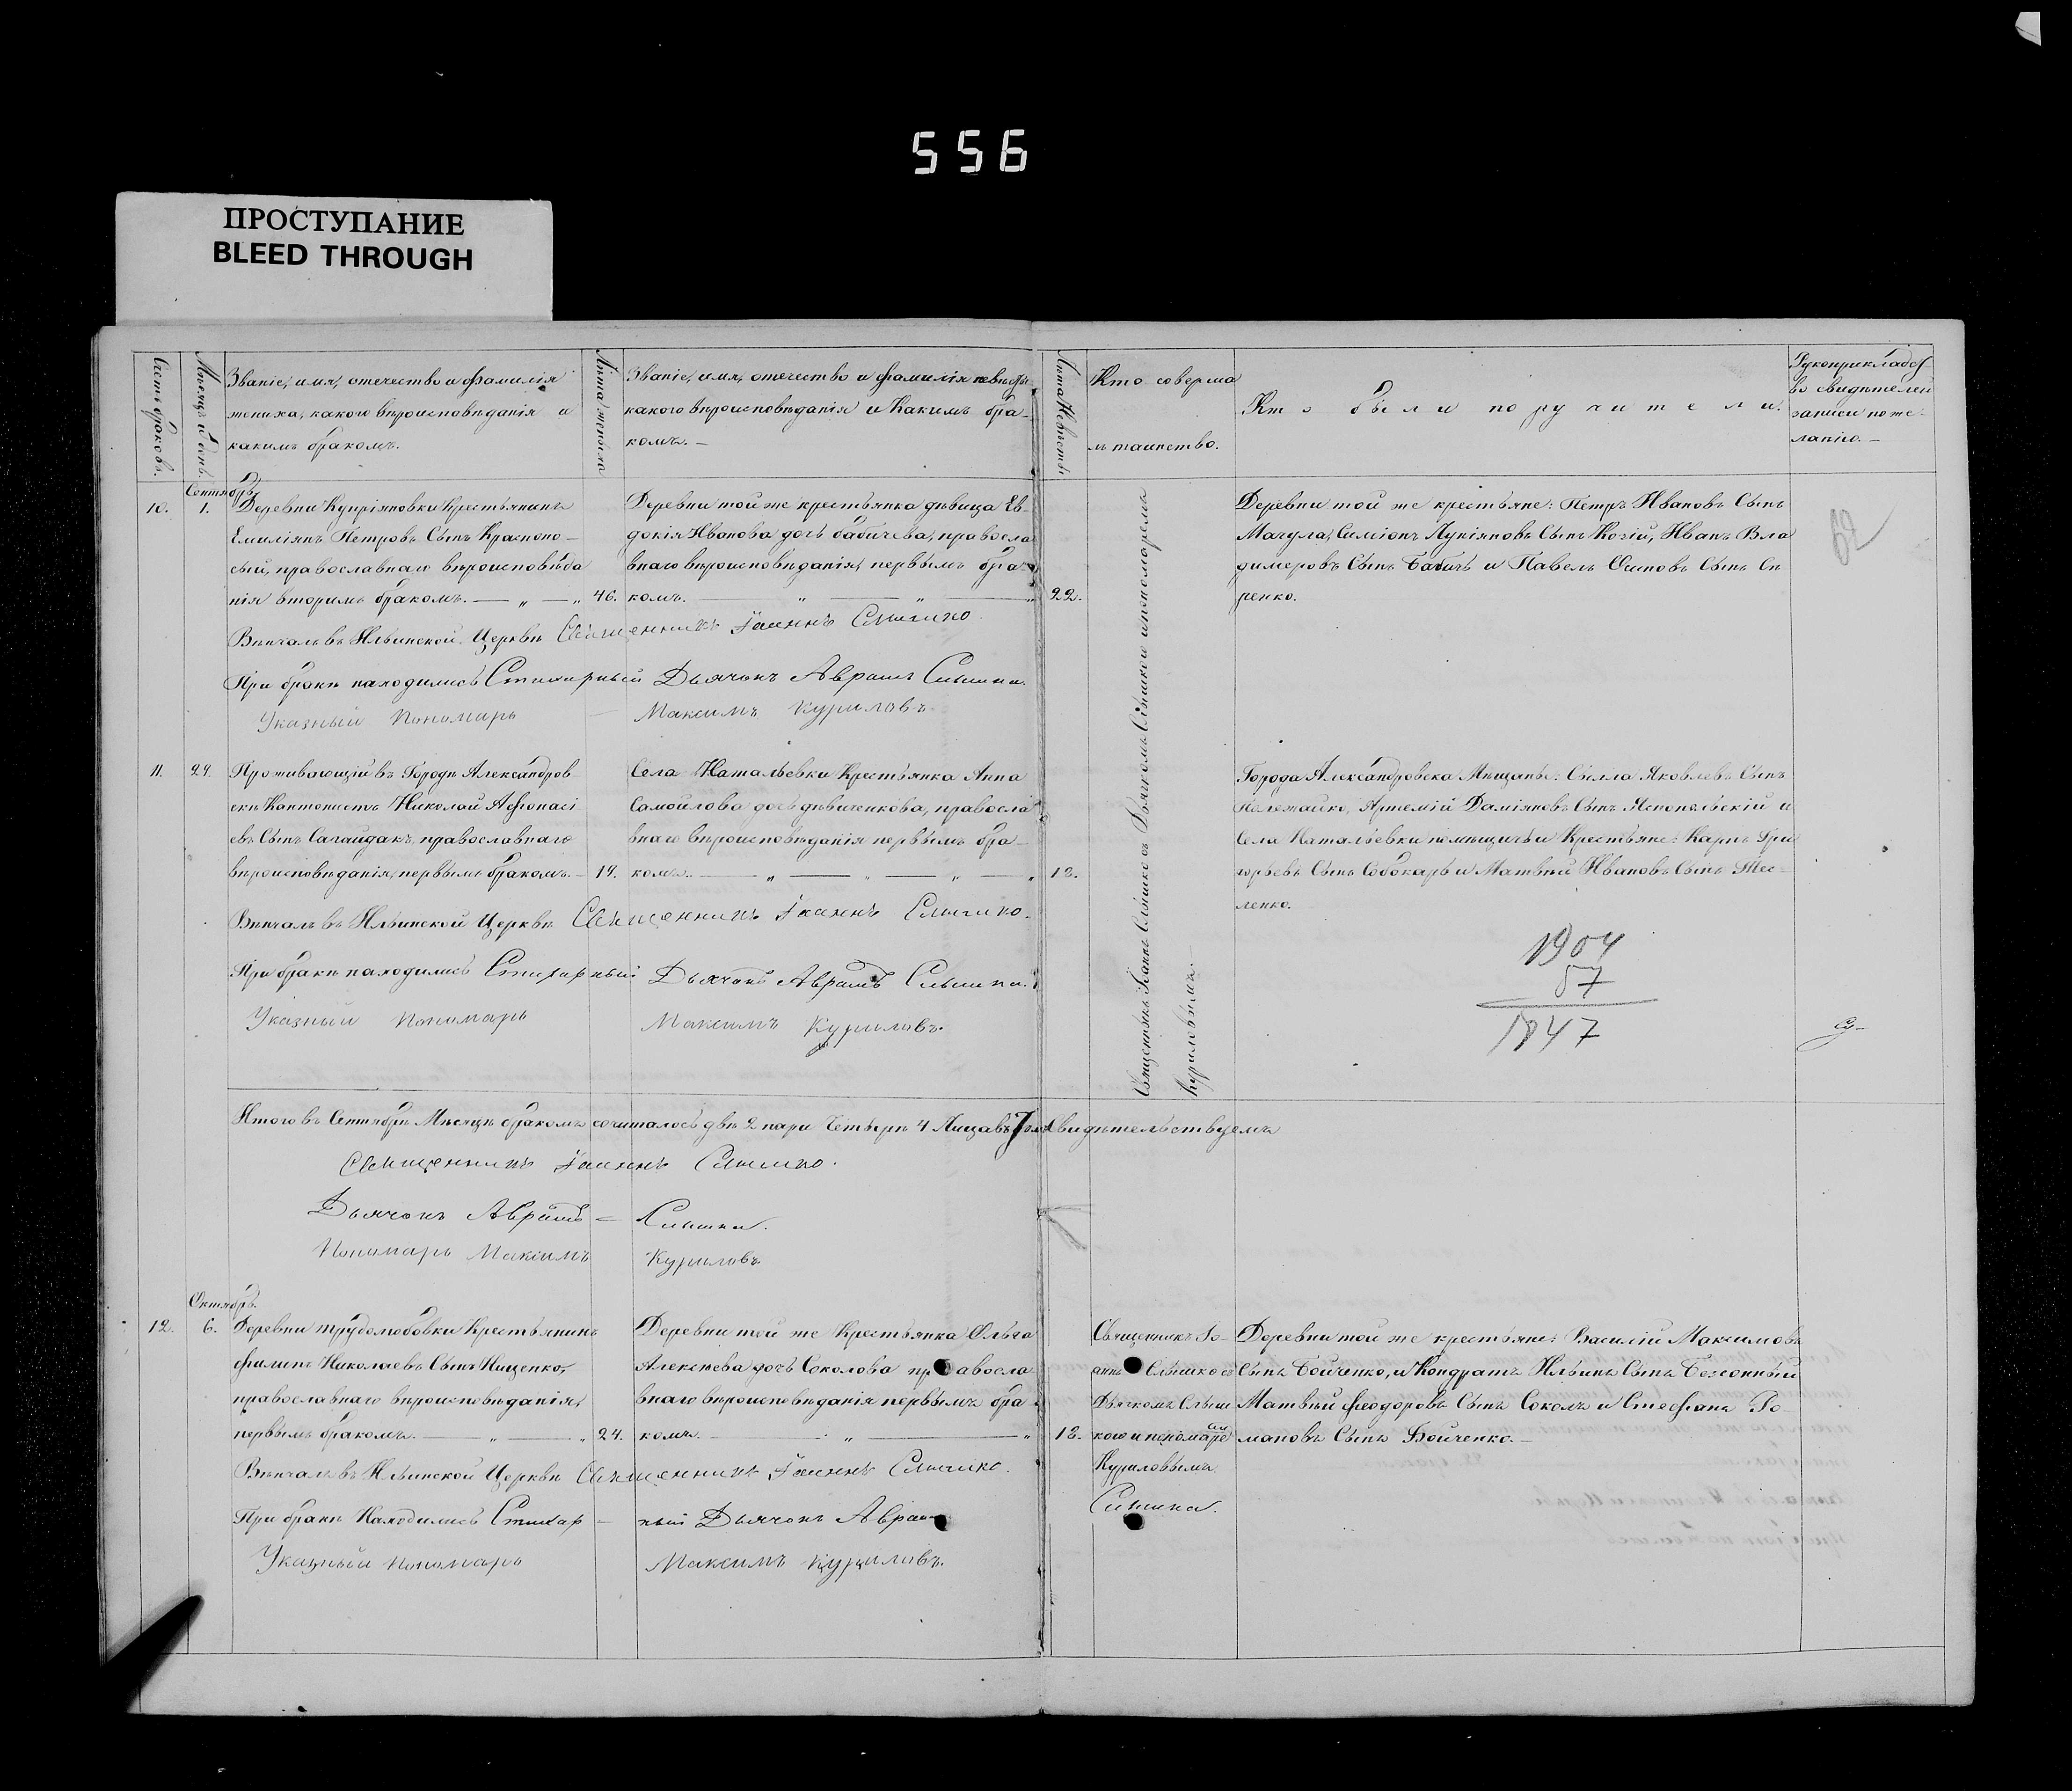 556
ПРОСТУПАНИЕ
BLEED THROUGH
Счетъ браковъ.
Мѣсяцъ и день.
Званіе, имя, отечество и фамилія
жениха, какого вѣроисповѣданія и
какимъ бракомъ.
Лѣта жениха
Званіе, имя, отечество и фамилія невѣсты
какого вѣроисповѣданія и Какимъ бра-
комъ. —
Лѣта Невѣсты
Кто соверша
лъ таинство.
Кто были поручители.
Рукоприкладст
во свидѣтелей
записи по же-
ланію. —
Сентябрь
10. 1. Деревни Купріяновки Крестьянинъ
Емиліянъ Петровъ Сынъ Красноно-
сый, православнаго вѣроисповѣда
нія вторымъ бракомъ. — „ — „ 46.
Деревни той же крестьянка дѣвица Ев-
докія Иванова дочь бабичева, правосла
внаго вѣроисповѣданія, первымъ бра-
комъ. — „ — „ — „ 22.
Деревни той же крестьяне: Петръ Ивановъ Сынъ
Магула, Симіонъ Лукіяновъ Сынъ Козій, Иванъ Вла
димеровъ Сынъ Бабичъ и Павелъ Осиповъ Сынъ Си
ренко.
62
Вѣнчалъ въ Ильинской Церквѣ Священникъ Іоаннъ Слышко.
При бракѣ находились Стихарный Дьячокъ Аврамъ Слышко.
Указный Пономарь — Максимъ Куриловъ
Священникъ Іоаннъ Слышко съ Дьячкомъ Слышкою и пономаремъ
Куриловымъ.
11. 29. Проживающій въ Городѣ Александров
скѣ Кантонистъ Николай Афонасі
евъ Сынъ Сагайдакъ, православнаго
вѣроисповѣданія, первымъ бракомъ. — 19.
Села Натальевки Крестьянка Анна
Самойлова дочь дѣвиченкова, правосла
внаго вѣроисповѣданія первымъ бра-
комъ. — „ — „ — „ — „ 18.
Города Александровска Мѣщане: Сылла Яковлевъ Сынъ
Артемій Даміяновъ Сынъ Яснопольскій и
Села Натальевки помѣщичьи Крестьяне: Карпъ Гри
горьевъ Сынъ Собокарь и Матвѣй Ивановъ Сынъ Тес-
ленко.
Вѣнчалъ въ Ильинской Церквѣ Священникъ Іоаннъ Слышко.
При бракѣ находились Стихарный Дьячокъ Аврамъ Слышко.
Указный Пономарь Максимъ Куриловъ.
1904
57
1847
Итого въ Сентябрѣ Мѣсяцѣ бракомъ сочиталось двѣ 2 пари Четыри 4 Лица въ томъ Свидѣтельствуемъ
Священникъ Іоаннъ Слышко.
Дьячокъ Аврамъ — Слышко.
Пономарь Максимъ Куриловъ
Октябрь.
12. 6. Деревни Трудолюбовки Крестьянинъ
Филипъ Николаевъ Сынъ Нищенко,
православнаго вѣроисповѣданія,
первымъ бракомъ. — „ — „ 24.
Деревни той же Крестьянка Ольга
Алексѣева дочь Соколова правосла
внаго вѣроисповѣданія первымъ бра
комъ. — „ — „ 18.
Священникъ Іо-
аннъ Слышко съ
Дьячкомъ Слыш
кою и пономаре
Куриловымъ
Деревни той же крестьяне: Василій Максимовъ
Сынъ Бойченко, и Кондратъ Ильинъ Сынъ Безсонный
Матвѣй Феодоровъ Сынъ Соколъ и Стефанъ Ро-
мановъ Сынъ Бойченко. —
Вѣнчалъ въ Ильинской Церквѣ Священникъ Іоаннъ Слышко.
При бракѣ Находились Стихар — ный Дьячокъ Аврамъ Слышко.
Указный пономарь Максимъ Куриловъ.